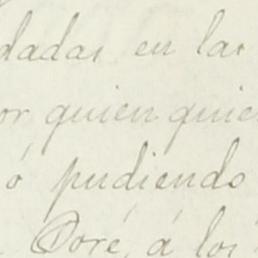 dadas en las
or quien quie
ó pudiendo
Doré, á los